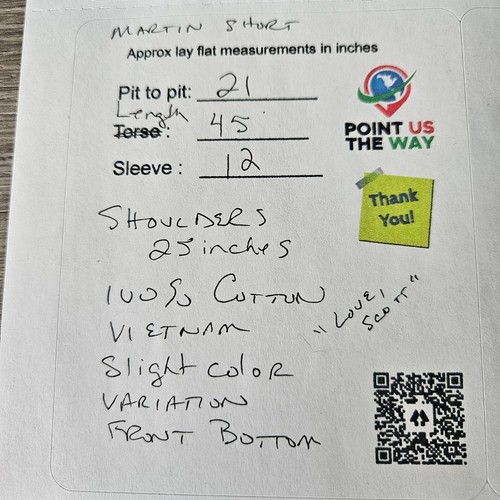 MARTIN SHORT
Approx lay flat measurements in inches
Pit to pit: 21
Length
Torso : 45
Sleeve : 12
POINT US
THE WAY
Thank
You!
SHOULDERS
25 inches
100% COTTON
VIETNAM
"LOVE,
SCOTT"
Slight color
VARIATION
FRONT BOTTOM